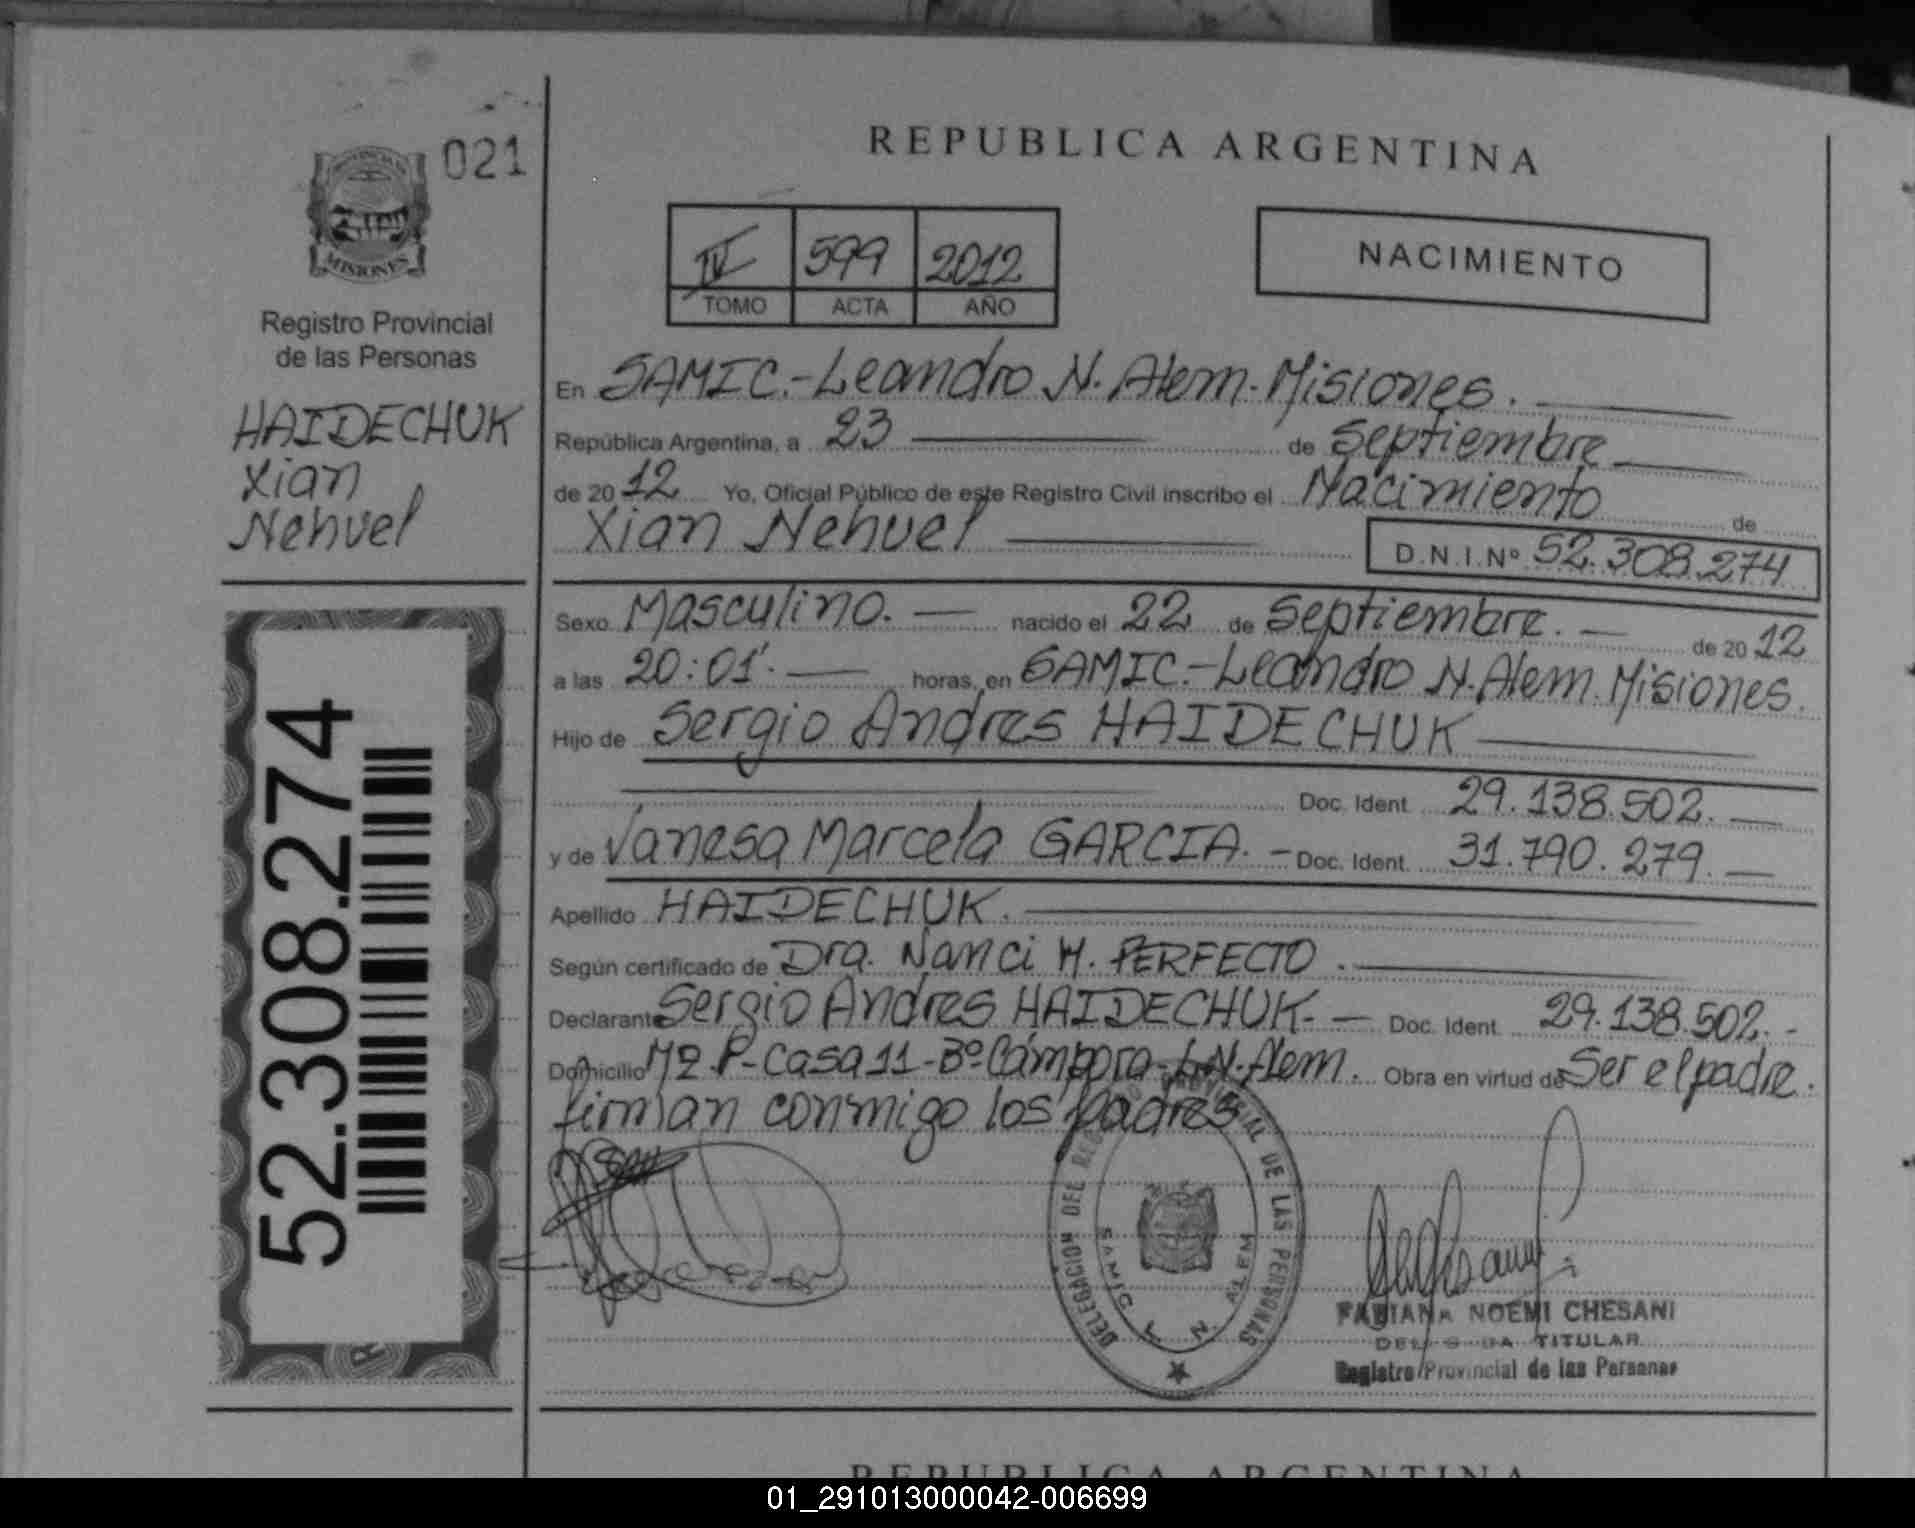 021
PROVINCIA DE
MISIONES
Registro Provincial
de las Personas
HAIDECHUK
Xian
Nehuel
52.308.274
REPUBLICA ARGENTINA
IV 599 2012
TOMO ACTA AÑO
NACIMIENTO
En SAMIC.-Leandro N. Alem-Misiones.
República Argentina, a 23 de Septiembre
de 20 12 Yo, Oficial Público de este Registro Civil inscribo el Nacimiento de
Xian Nehuel
D.N.I.Nº 52.308.274
Sexo Masculino. nacido el 22 de Septiembre. de 20 12
a las 20:01'. horas, en SAMIC.-Leandro N. Alem. Misiones.
Hijo de Sergio Andres HAIDECHUK
Doc. Ident. 29.138.502.
y de Vanesa Marcela GARCIA. - Doc. Ident. 31.790.279.
Apellido HAIDECHUK.
Según certificado de Dra. Nanci H. PERFECTO.
Declarante Sergio Andres HAIDECHUK.- Doc. Ident. 29.138.502.-
Domicilio Mz P-Casa 11-Bº Cámpora-L.N.Alem. Obra en virtud de Ser el padre.
firman conmigo los padres
DELEGACION DEL REGISTRO PROVINCIAL DE LAS PERSONAS
SAMIC L. N. ALEM
FABIANA NOEMI CHESANI
DELEGADA TITULAR
Registro Provincial de las Personas
REPUBLICA ARGENTINA
01_291013000042-006699